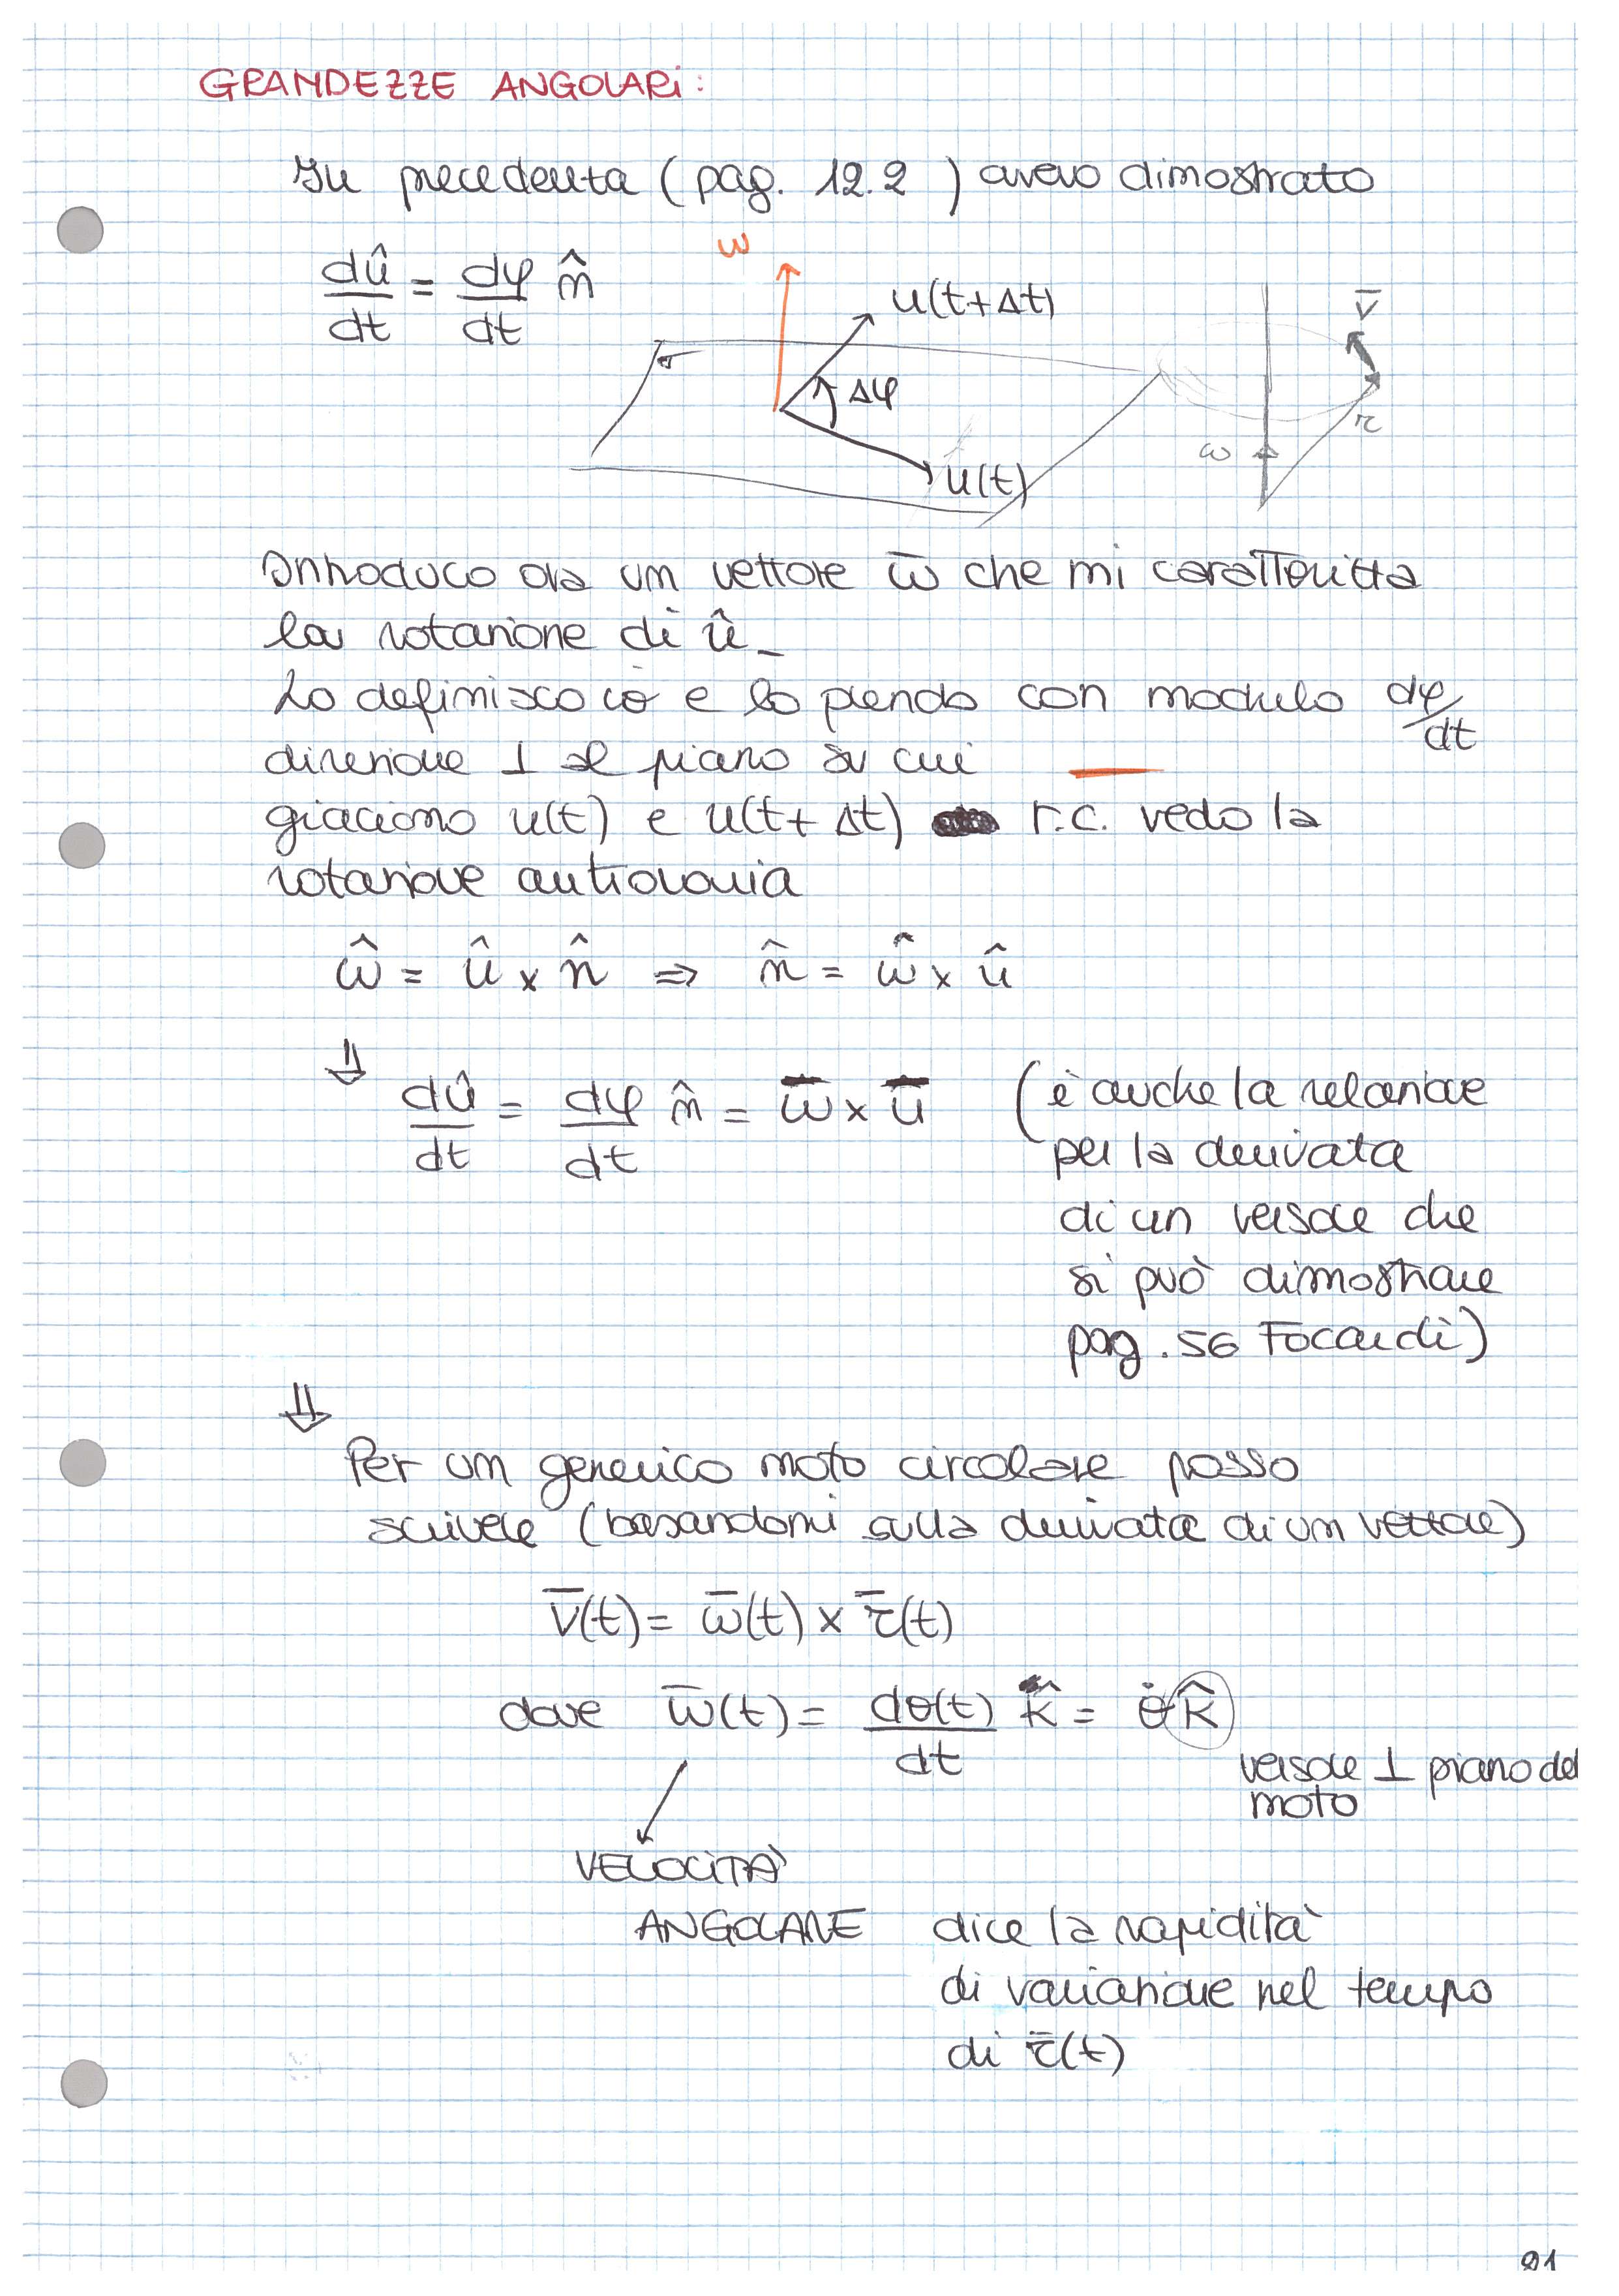 GRANDEZZE ANGOLARi:
In precedenza (pag. 12.2 ) avevo dimostrato
dû/dt = dφ/dt n̂
ω
u(t+Δt)
Δφ
u(t)
σ
v̅
r
ω
Introduco ora un vettore ω̅ che mi caratterizza
la rotazione di û_
Lo definisco ω e lo prendo con modulo dφ/dt
direzione ⊥ al piano su cui
giaciono u(t) e u(t+Δt) t.c. vedo la
rotazione antioraria
ω̂ = û × n̂ ⇒ n̂ = ω̂ × û
⇓ dû/dt = dφ/dt n̂ = ω̅ × u̅ (è anche la relazione
per la derivata
di un versore che
si può dimostrare
pag. 56 Focardi)
⇓
Per un generico moto circolare posso
scrivere (basandomi sulla derivata di un vettore)
v̅(t) = ω̅(t) × r̅(t)
dove ω̅(t) = dθ(t)/dt k̂ = θ̇ k̂
versore ⊥ piano del
moto
VELOCITÀ
ANGOLARE dice la rapidità
di variazione nel tempo
di r̅(t)
91